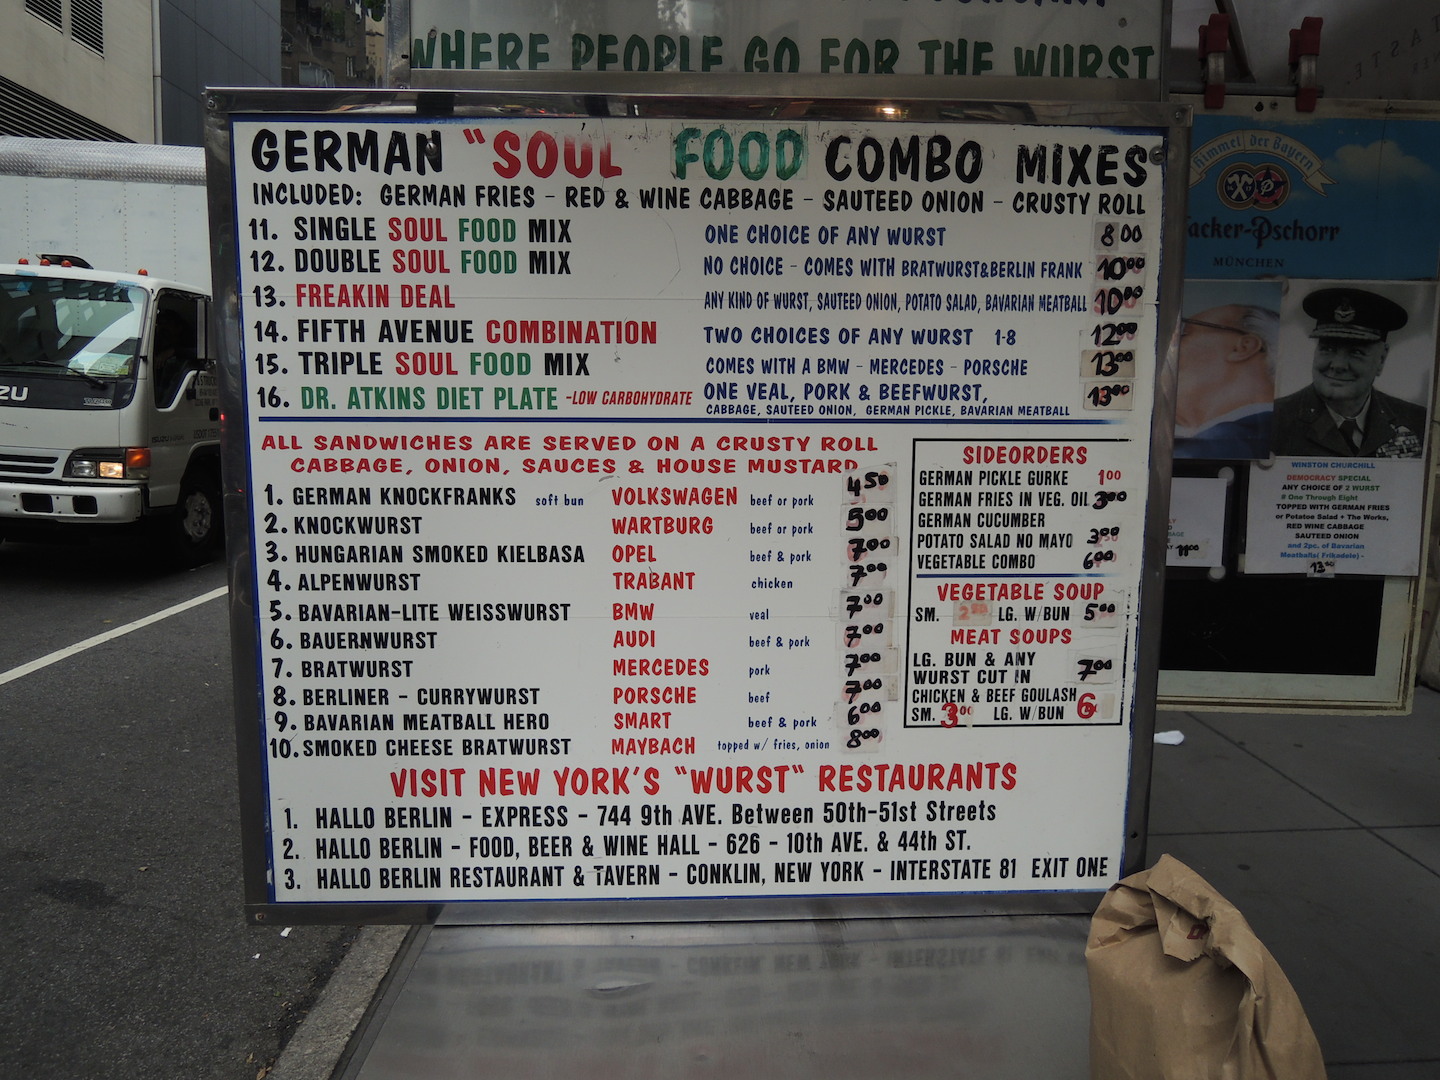 WHERE PEOPLE GO FOR THE WURST
GERMAN "SOUL FOOD COMBO MIXES
INCLUDED: GERMAN FRIES - RED & WINE CABBAGE - SAUTEED ONION - CRUSTY ROLL
11. SINGLE SOUL FOOD MIX ONE CHOICE OF ANY WURST 8 00
12. DOUBLE SOUL FOOD MIX NO CHOICE - COMES WITH BRATWURST&BERLIN FRANK 10 00
13. FREAKIN DEAL ANY KIND OF WURST, SAUTEED ONION, POTATO SALAD, BAVARIAN MEATBALL 10 00
14. FIFTH AVENUE COMBINATION TWO CHOICES OF ANY WURST 1-8 12 00
15. TRIPLE SOUL FOOD MIX COMES WITH A BMW - MERCEDES - PORSCHE 13 00
16. DR. ATKINS DIET PLATE -LOW CARBOHYDRATE ONE VEAL, PORK & BEEFWURST, 13 00
CABBAGE, SAUTEED ONION, GERMAN PICKLE, BAVARIAN MEATBALL
ALL SANDWICHES ARE SERVED ON A CRUSTY ROLL
CABBAGE, ONION, SAUCES & HOUSE MUSTARD
1. GERMAN KNOCKFRANKS soft bun VOLKSWAGEN beef or pork 4 50
2. KNOCKWURST WARTBURG beef or pork 5 00
3. HUNGARIAN SMOKED KIELBASA OPEL beef & pork 7 00
4. ALPENWURST TRABANT chicken 7 00
5. BAVARIAN-LITE WEISSWURST BMW veal 7 00
6. BAUERNWURST AUDI beef & pork 7 00
7. BRATWURST MERCEDES pork 7 00
8. BERLINER - CURRYWURST PORSCHE beef 7 00
9. BAVARIAN MEATBALL HERO SMART beef & pork 6 00
10. SMOKED CHEESE BRATWURST MAYBACH topped w/ fries, onion 8 00
SIDEORDERS
GERMAN PICKLE GURKE 1 00
GERMAN FRIES IN VEG. OIL 3 00
GERMAN CUCUMBER
POTATO SALAD NO MAYO 3 00
VEGETABLE COMBO 6 00
VEGETABLE SOUP
SM. 2 50 LG. W/BUN 5 00
MEAT SOUPS
LG. BUN & ANY
WURST CUT IN 7 00
CHICKEN & BEEF GOULASH
SM. 3 00 LG. W/BUN 6
VISIT NEW YORK'S "WURST" RESTAURANTS
1. HALLO BERLIN - EXPRESS - 744 9th AVE. Between 50th-51st Streets
2. HALLO BERLIN - FOOD, BEER & WINE HALL - 626 - 10th AVE. & 44th ST.
3. HALLO BERLIN RESTAURANT & TAVERN - CONKLIN, NEW YORK - INTERSTATE 81 EXIT ONE
Himmel der Bayern
acker-Pschorr
MÜNCHEN
WINSTON CHURCHILL
DEMOCRACY SPECIAL
ANY CHOICE OF 2 WURST
# One Through Eight
TOPPED WITH GERMAN FRIES
or Potatoe Salad + The Works,
RED WINE CABBAGE
SAUTEED ONION
and 2pc. of Bavarian
Meatballs( Frikadele) -
13 00
11 00